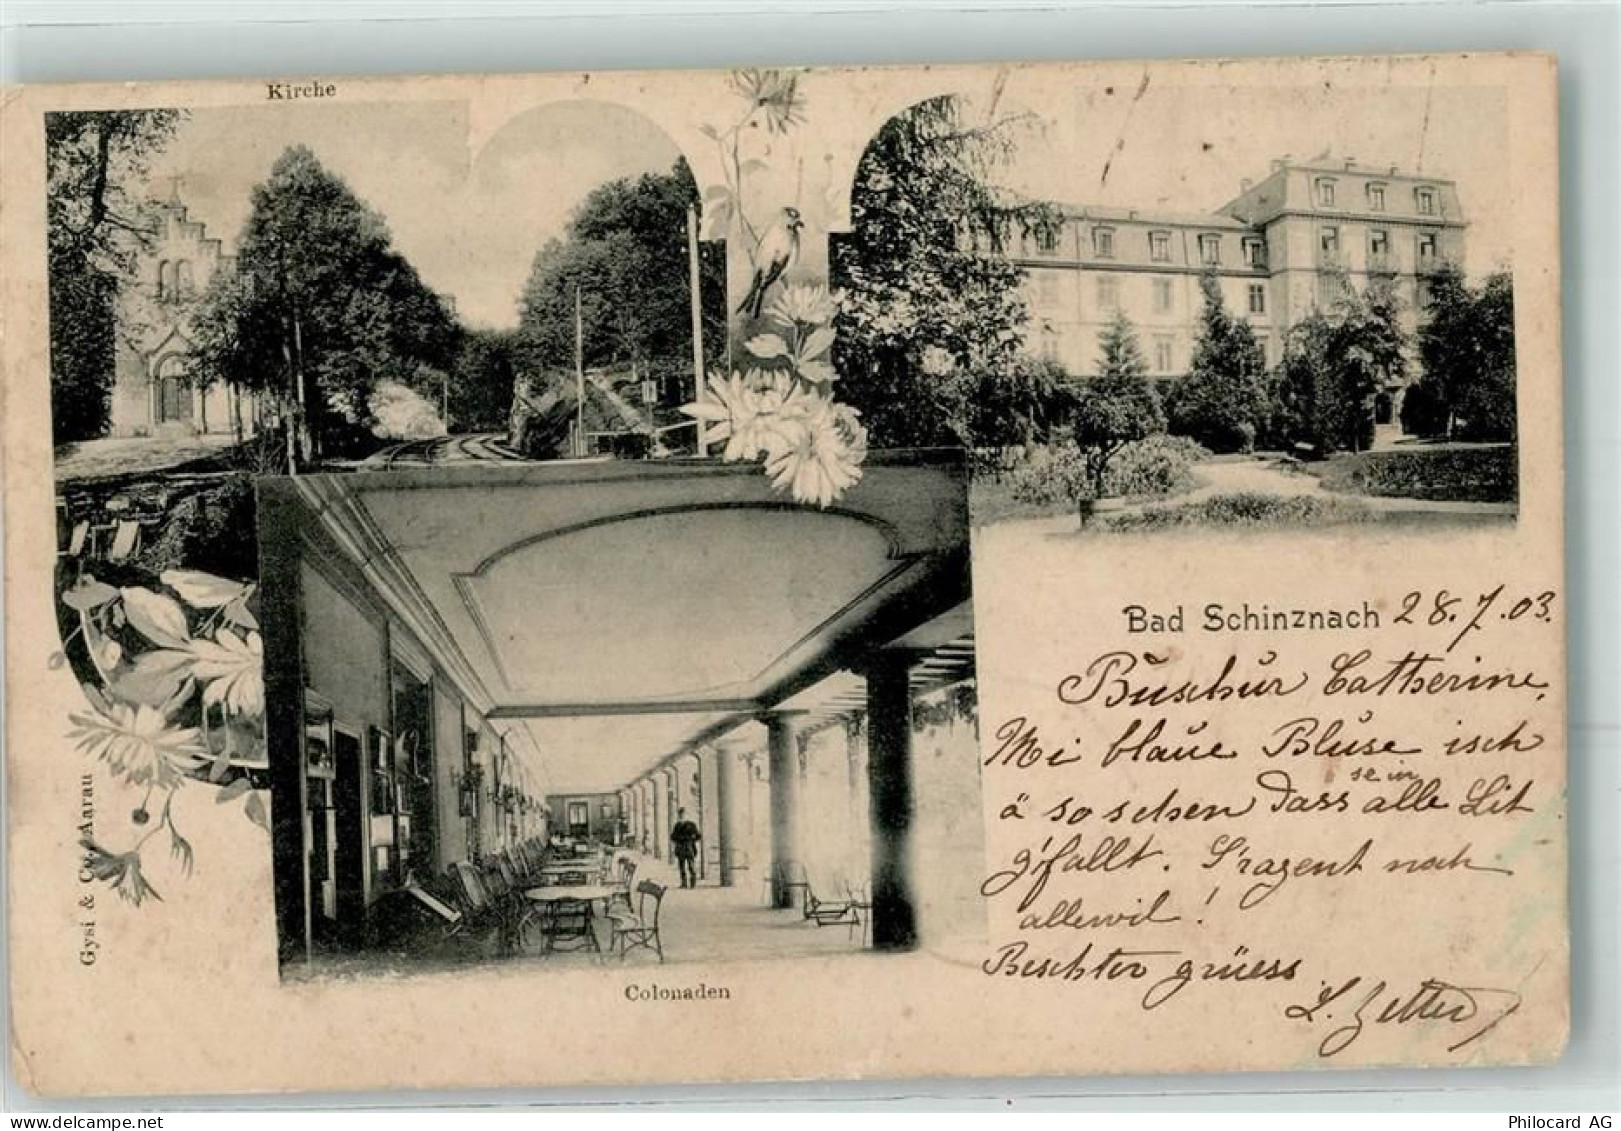 Kirche
Bad Schinznach 28.7.03.
Buschur Catherine,
Mi blaue Bluse isch
ä so schen dass sein alle Lit
g'fallt. S'ragent noch
allewil!
Beschter grüess
L. Zetter
Gysi & Co. Aarau
Colonaden
Philocard AG